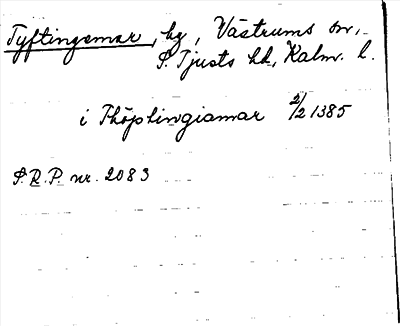 Tyftingemar, by, Västrums sn,
S. Tjusts hd, Kalm. l.
i Thöplingiamar 2/2 1385
S.R.P. nr. 2083